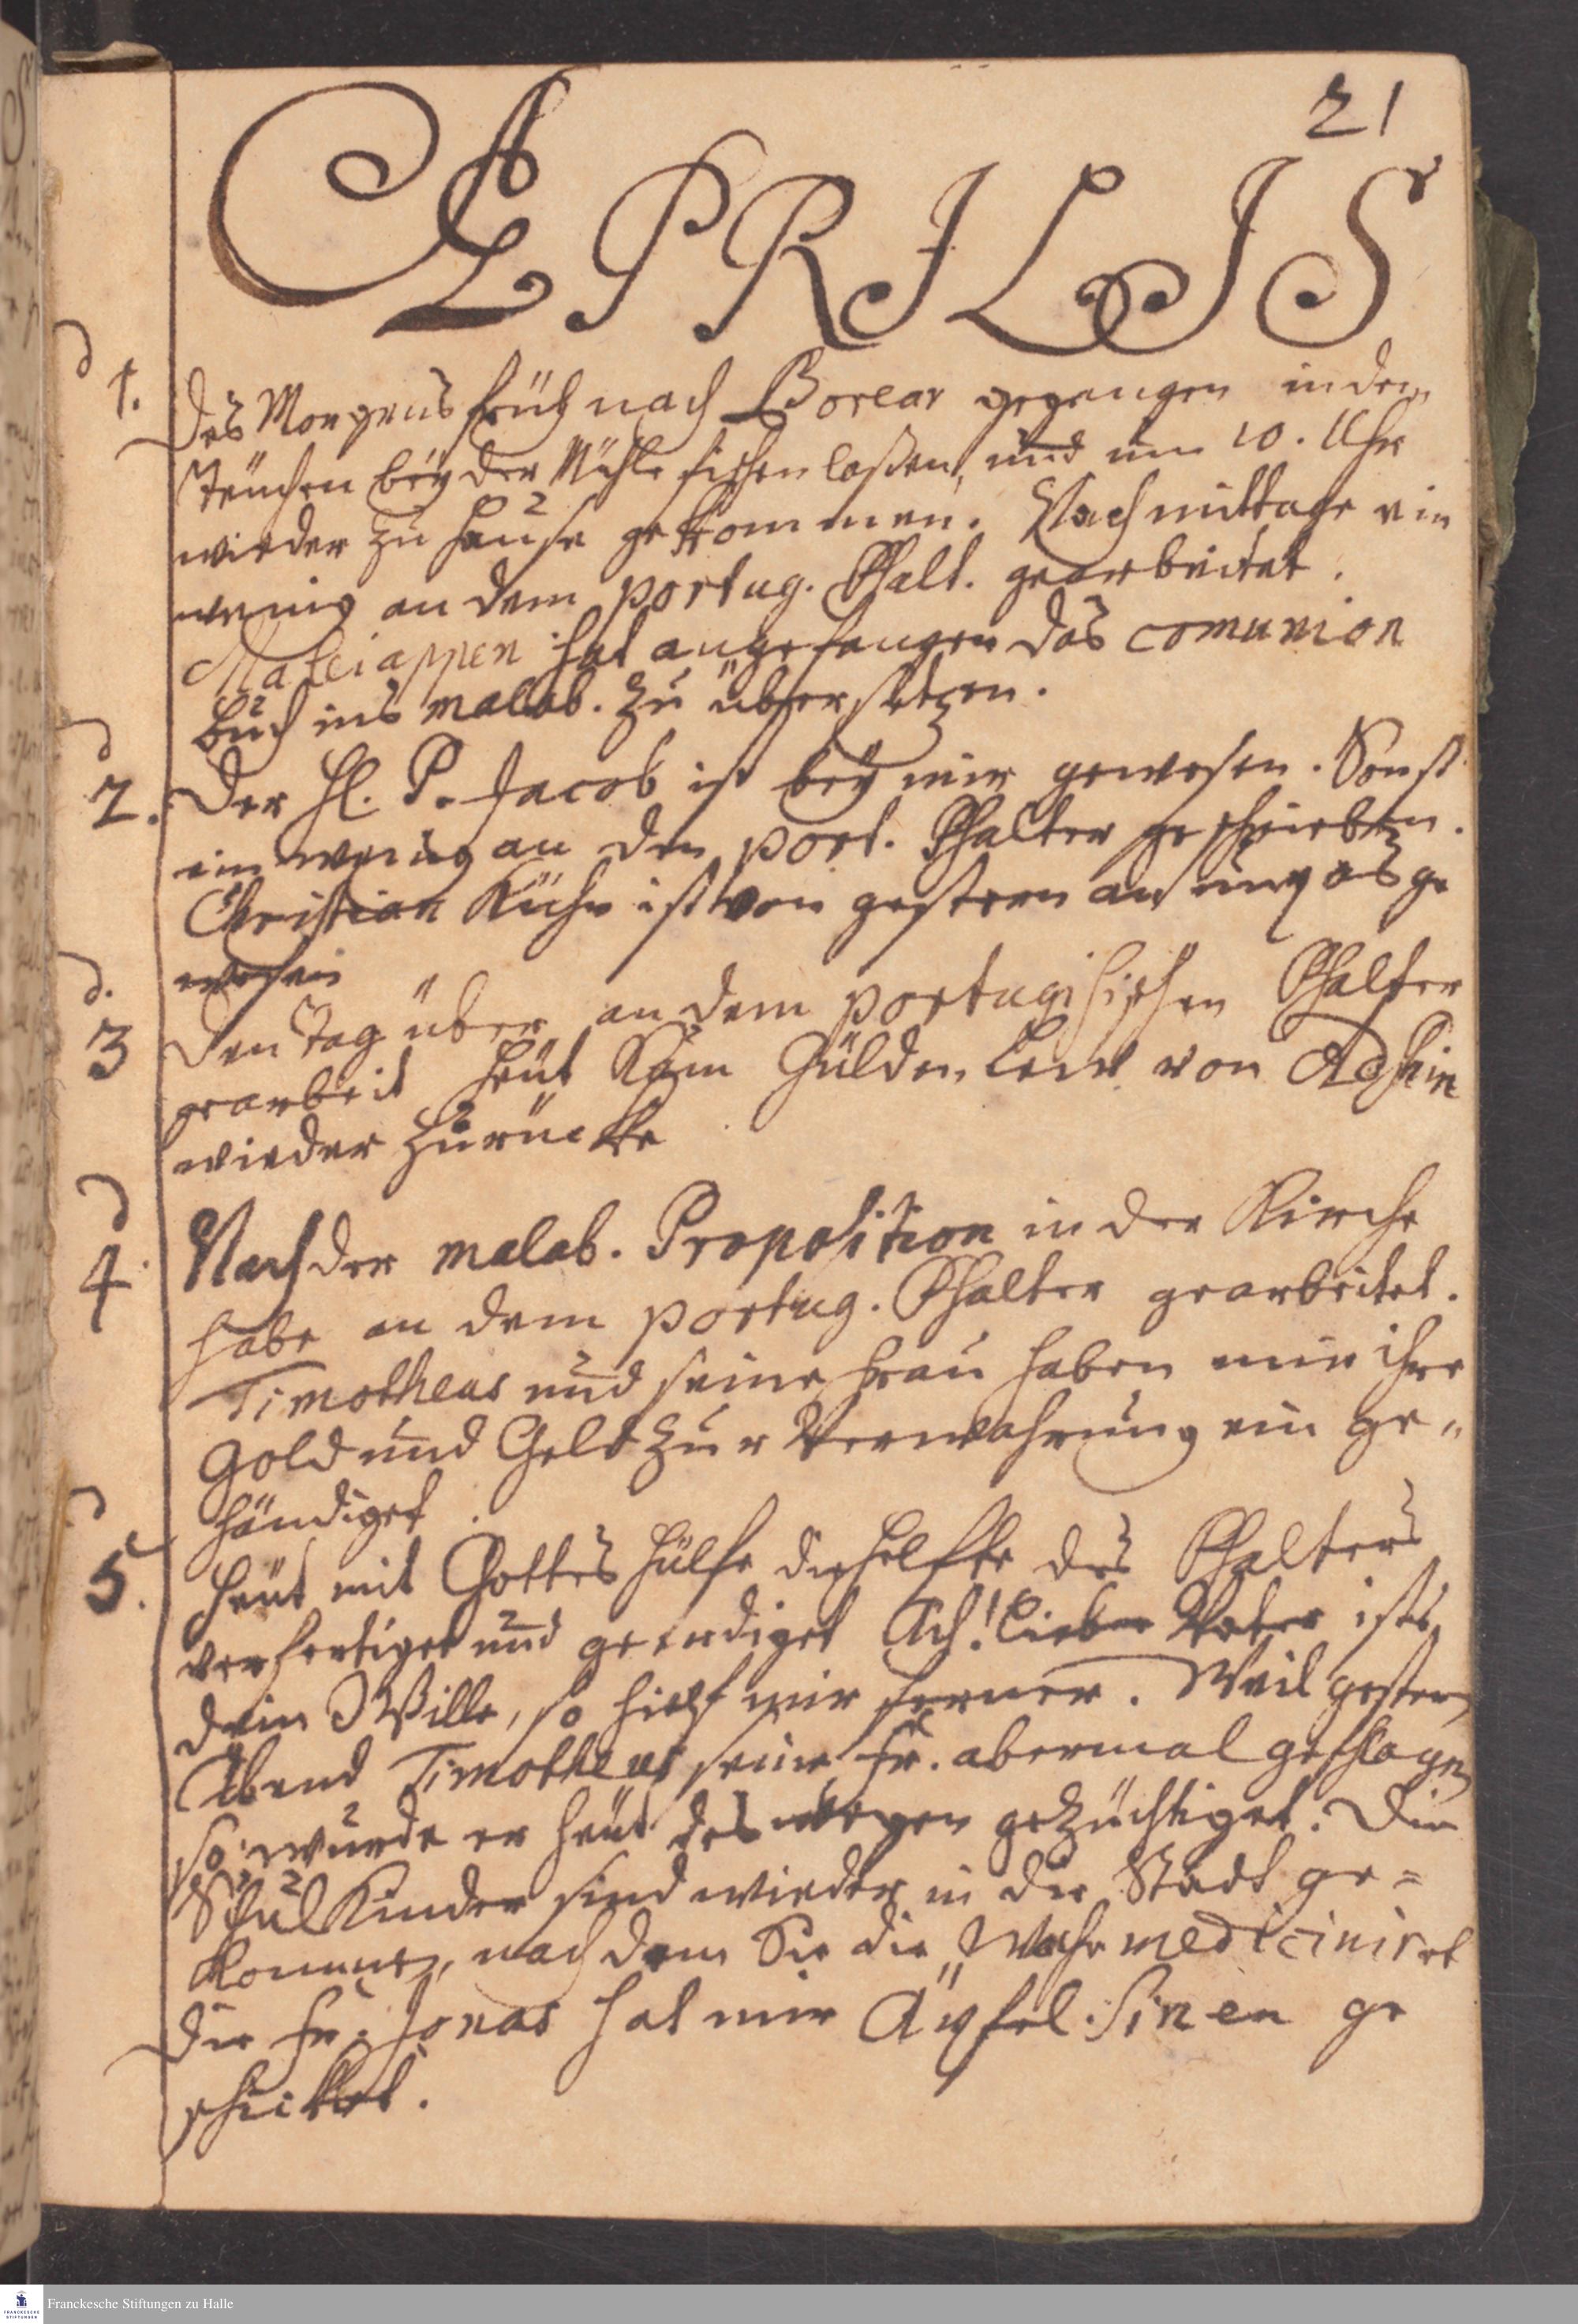 21
APRILIS
d 1. Des Morgens früh nach Borear gegangen in dem
Teuchen beÿ der Mühle fischen laßen, und um 10. Uhr
wieder zu Hause gekommen. Nachmittage ein
wenig an dem portug. Psalt. gearbeitet.
Maleiappen hat angefangen das comunion
buch ins malab. zu übersetzen.
d 2. Der H. P. Jacob ist beÿ mir gewesen. Sonst
ein wenig an den port. Psalter geschrieben.
Christian Kühn ist von gestern an ge
wesen
d. 3 Den Tag über an dem portugisischen Psalter
gearbeit heut Kam Gülden Leuw von Adshin
wieder zurücke
d 4. Nach der malab. Proposition in der Kirche
habe an dem portug. Psalter gearbeitet.
Timotheus und seine Frau haben mir ihre
Gold und Geld zur Verwahrung ein ge„
händiget.
d 5. Heut mit Gottes Hülfe die helffte des Psalters
verfertiget und geendiget Ach! lieber Vater ists
dein Wille, so hielf mir ferner. Weil gestern
Abend Timotheus seine Fr. abermal geschlagen
so wurde er heut deswegen gezüchtiget. Die
Schul Kinder sind wieder in die Stadt ge=
kommen, nach dem Sie die Woche mediciniret
Die Fr. Jonas hat mir Äpfel. Sinen ge
schicket.
Franckesche Stiftungen zu Halle